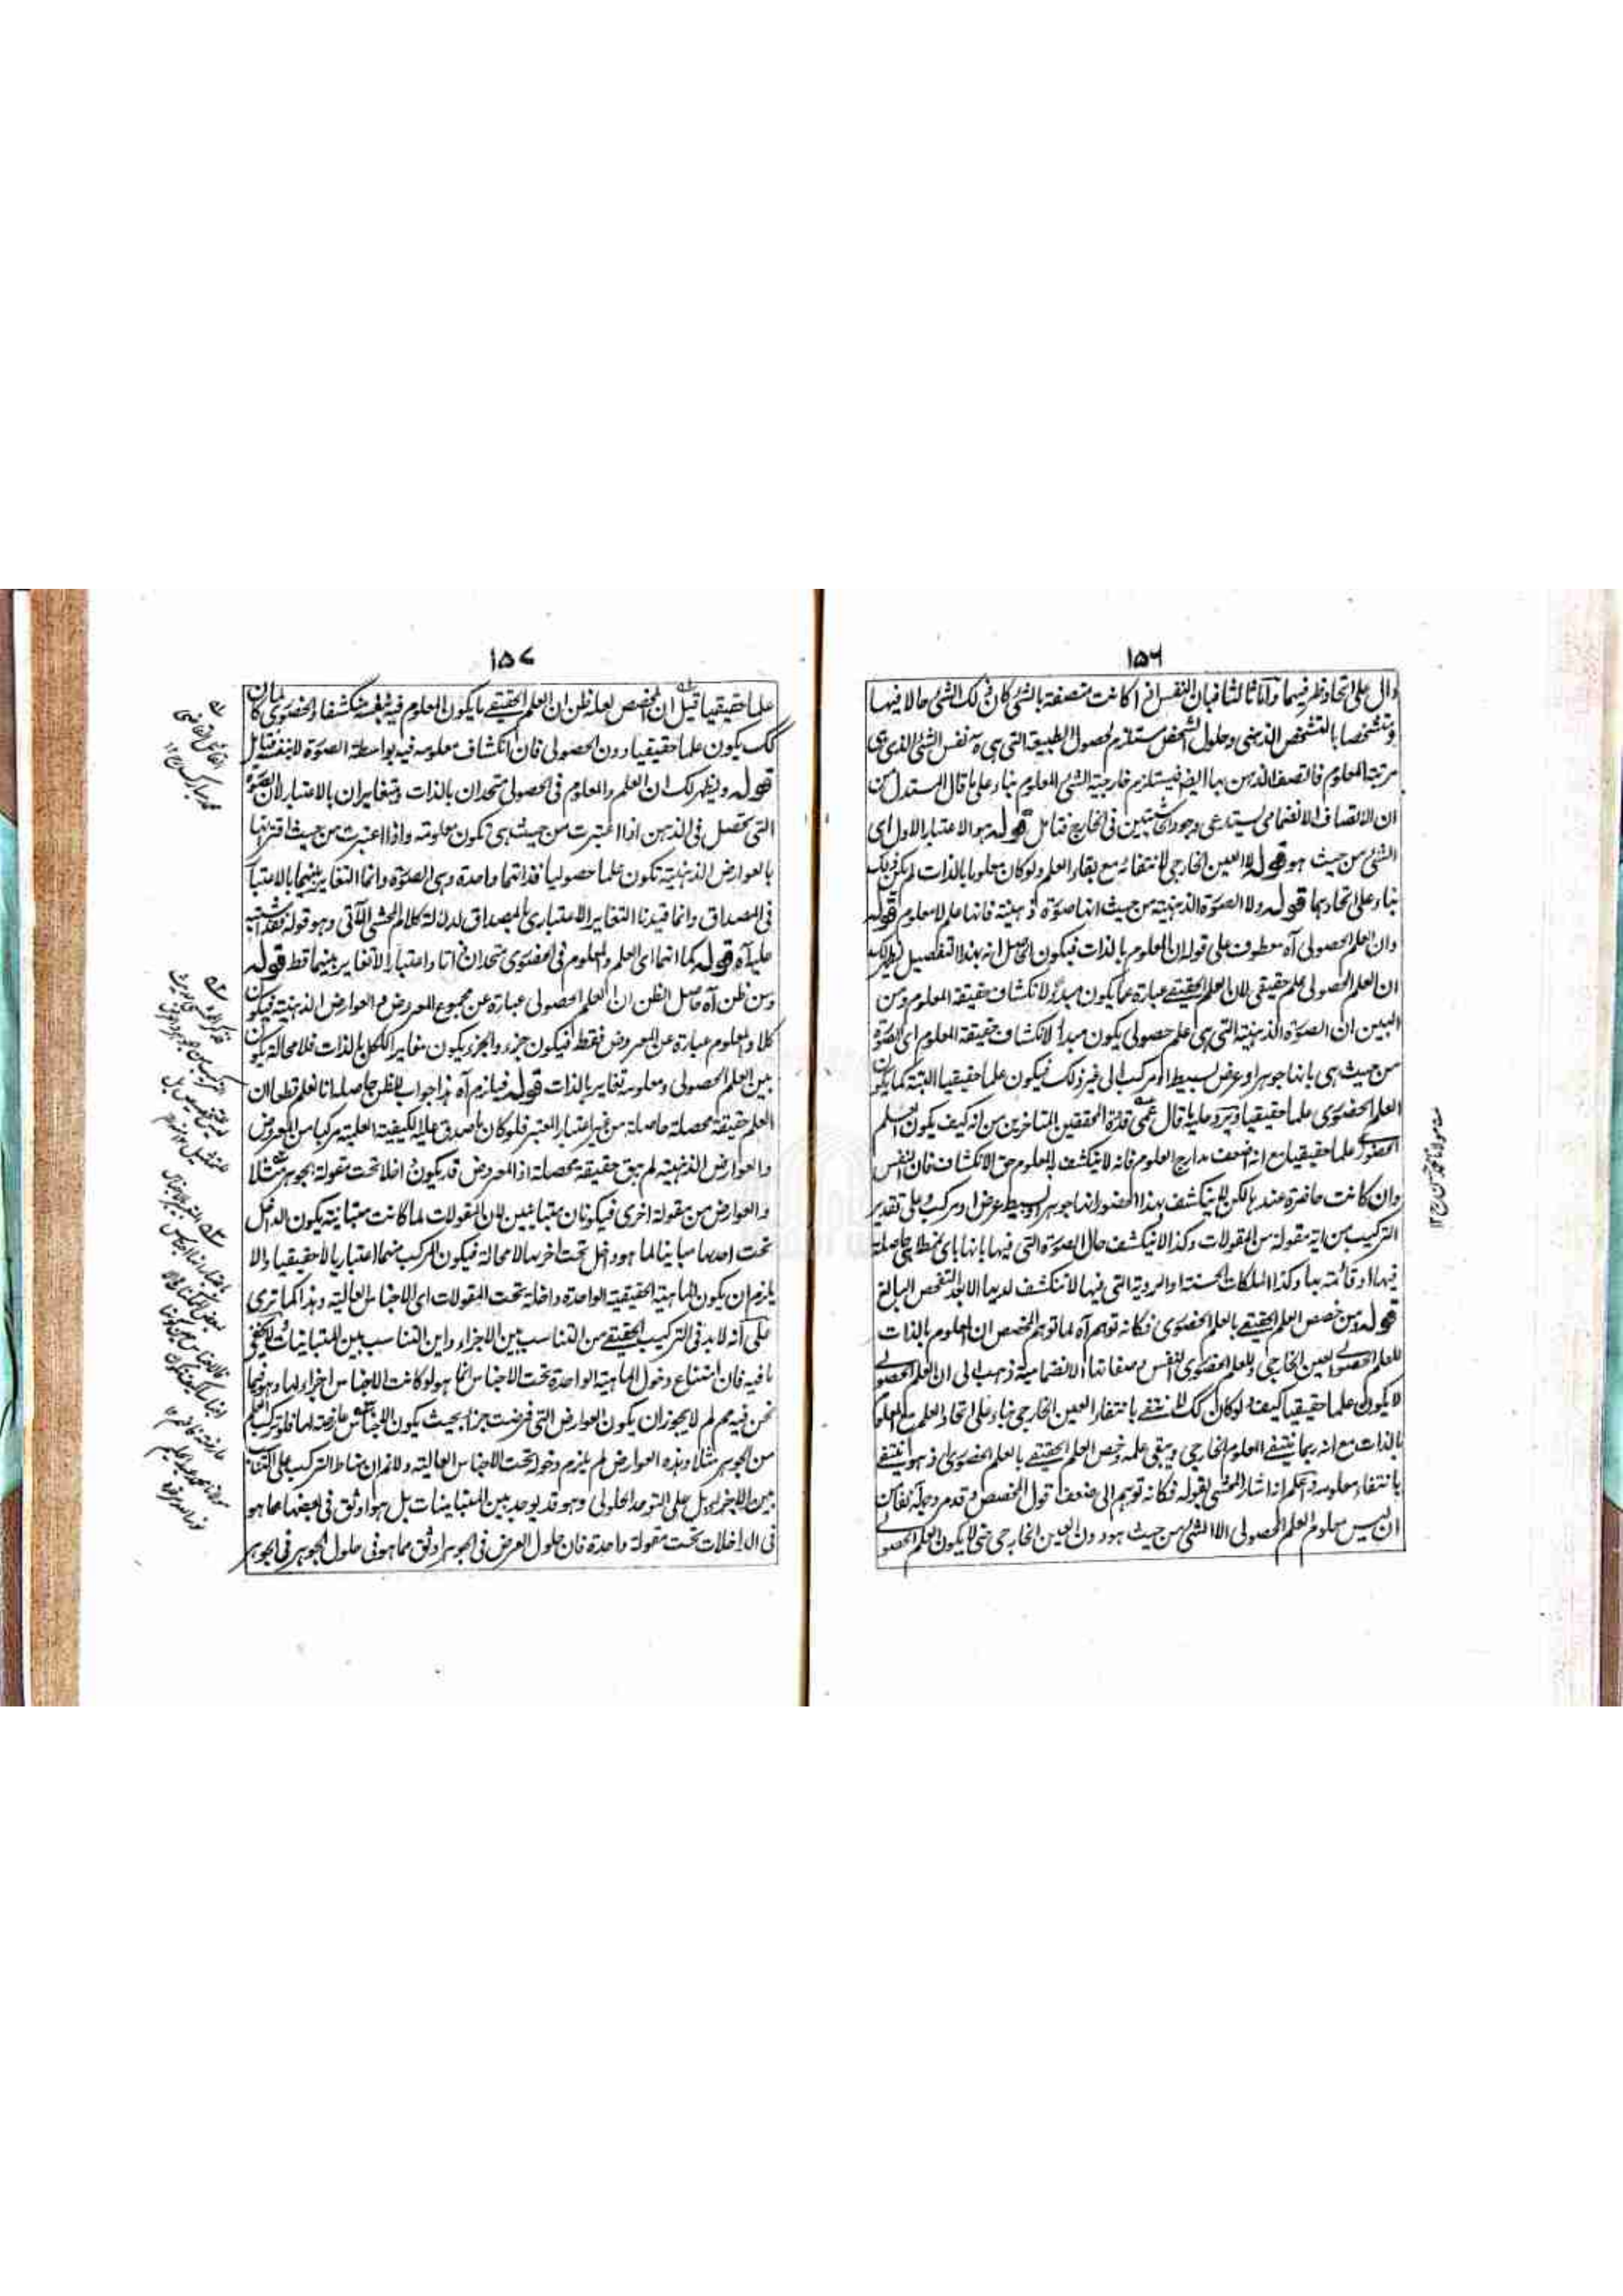 ١٥٦
دال على اتحاد ونظر فيهما وآما ثالثا فبان النفس اذا كانت متصفة بالشئ كان ذلك الشئ حالا فيها
ومتشخصا بالتشخص الذهنى وحلول الشخص مستلزم لحصول الطبيعة التى هى نفس الشئ الذى هى
مرتبة المعلوم فاتصف الذهن بها ايضا فيستلزم خارجية الشئ المعلوم بناء على ما قال المستدل من
ان الاتصاف الانضمامى يستدعى وجود الحاشيتين فى الخارج فتامل قوله هو الاعتبار الاول اى
الشئ من حيث هو قوله لا العين الخارجى لانتفائه مع بقاء العلم ولو كان معلوما بالذات لم يكن كك
بناء على اتحادهما قوله ولا الصورة الذهنية من حيث انها صورة ذهنية فانها علم لا معلوم قوله
وان العلم الحصولى آه معطوف على قوله ان المعلوم بالذات فيكون الحاصل انه بهذا التفصيل يظهر لك
ان العلم الحصولى علم حقيقى لان العلم الحقيقى عبارة عما يكون مبدءا لانكشاف حقيقة المعلوم ومن
البين ان الصورة الذهنية التى هى علم حصولى يكون مبدأ لانكشاف حقيقة المعلوم اى الصورة
من حيث هى بانها جوهر او عرض بسيط او مركب الى غير ذلك فيكون علما حقيقيا البتة كما يكون
العلم الحضورى علما حقيقيا ويرد عليه ما قال عمى قدوة المحققين المتاخرين من انه كيف يكون العلم
الحضورى علما حقيقيا مع انه اضعف مدارج العلوم فانه لا ينكشف به المعلوم حق الانكشاف فان النفس
وان كانت حاضرة عندها لكن لا ينكشف بهذا الحضور انها جوهر او بسيط عرض او مركب وعلى تقدير
التركيب من اية مقولة من المقولات وكذا لا ينكشف حال الصورة التى فيها بانها باى نمط هى حاصلة
فيها او قائمة بها وكذا الملكات الحسنة او الردية التى فيها لا تنكشف لديها الا بعد التفحص البالغ
قوله ومن خصص العلم الحقيقى بالعلم الحضورى فكانه توهم آه لما توهم المخصص ان المعلوم بالذات
للعلم الحصولى العين الخارجى وللعلم الحضورى النفس وصفاتها الانضمامية ذهب الى ان العلم الحصولى
لا يكون علما حقيقيا كيف ولو كان كك لانتفى بانتفاء العين الخارجى بناء على اتحاد العلم مع المعلوم
بالذات مع انه ربما ينتفى المعلوم الخارجى ويبقى علمه وخص العلم الحقيقى بالعلم الحضورى اذ هو ينتفى
بانتفاء معلومه ثم اعلم انه اشار المحشى بقوله فكانه توهم الى ضعف قول المخصص وقد مر وجهه آنفا من
ان ليس معلوم العلم الحصولى الا الشئ من حيث هو دون العين الخارجى حتى لا يكون العلم الحصولى
مولانا محمد حسن رح ١٢
١٥٧
علما حقيقيا قيل ان المخصص لعله ظن ان العلم الحقيقى ما يكون المعلوم فيه بنفسه منكشفا والحضورى لما كان
كك يكون علما حقيقيا دون الحصولى فان انكشاف معلومه فيه بواسطة الصورة لا بنفسه فتامل
قوله ويظهر لك ان العلم والمعلوم فى الحصولى متحدان بالذات ومتغايران بالاعتبار لان الصورة
التى تحصل فى الذهن اذا اعتبرت من حيث هى تكون معلومة واذا اعتبرت من حيث اقترانها
بالعوارض الذهنية تكون علما حصوليا فذاتهما واحدة وهى الصورة وانما التغاير بينهما بالاعتبار
فى المصداق وانما قيدنا التغاير الاعتبارى بالمصداق لدلالة كلام المحشى الآتى وهو قوله فقد اشتبه
عليه آه قوله كما انهما اى العلم والمعلوم فى الحضورى متحدان ذاتا واعتبارا لا تغاير بينهما قط قوله
ومن ظن آه حاصل الظن ان العلم الحصولى عبارة عن مجموع المعروض والعوارض الذهنية فيكون
كلا والمعلوم عبارة عن المعروض فقط فيكون جزء والجزء يكون مغاير الكل بالذات فلا محالة يكون
بين العلم الحصولى ومعلومه تغاير بالذات قوله فيلزم آه هذا جواب للظن حاصله انا نعلم قطعا ان
العلم حقيقة محصلة حاصلة من غير اعتبار المعتبر فلو كان ما صدق عليه الكيفية العلمية مركبا من المعروض
والعوارض الذهنية لم يبق حقيقة محصلة اذ المعروض قد يكون داخلا تحت مقولة الجوهر مثلا
والعوارض من مقولة اخرى فيكونان متباينين لان المقولات لما كانت متباينة يكون الداخل
تحت احدها مباينا لما هو داخل تحت اخرها لا محالة فيكون المركب منهما اعتباريا لا حقيقيا والا
يلزم ان يكون الماهية الحقيقية الواحدة داخلة تحت المقولات اى الاجناس العالية وهذا كما ترى
على انه لا بد فى التركيب الحقيقى من التناسب بين الاجزاء واين التناسب بين المتباينات ولا يخفى
ما فيه فان امتناع دخول الماهية الواحدة تحت الاجناس انما هو لو كانت الاجناس اجزاء لها وهو فيما
نحن فيه مم لم لا يجوز ان يكون العوارض التى فرضت جزءا بحيث يكون الاجناس عارضة لها فلو تركب العلم
من الجوهر مثلا وهذه العوارض لم يلزم دخوله تحت الاجناس العالية ولا نم ان مناط التركيب على التناسب
بين الاجزاء بل على التوحد الحلولى وهو قد يوجد بين المتباينات بل هو اوثق فى بعضها مما هو
فى الداخلات تحت مقولة واحدة فان حلول العرض فى الجوهر اوثق مما هو فى حلول الجوهر فى الجوهر